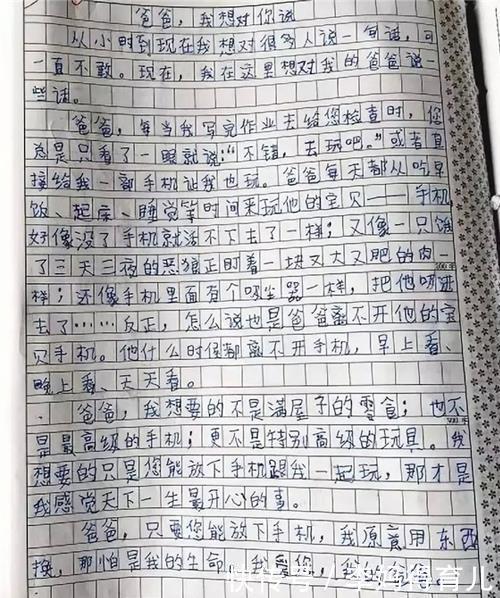 爸爸，我想对你说
从小时到现在我想对很多人说一句话，可
一直不敢。现在，我在这里想对我的爸爸说一
些话。
爸爸，每当我写完作业去给您检查时，您
总是只看了一眼就说："不错，去玩吧。"或者直
接给我一部手机让我也玩。爸爸每天都从吃早
饭、起床、睡觉等时间来玩他的宝贝——手机
好像没了手机就活不下去了一样；又像一只饿
了三天三夜的恶狼正盯着一块又大又肥的肉一
样；还像手机里面有个吸尘器一样，把他吸进
去了……反正，怎么说也是爸爸离不开他的宝
贝手机。他什么时候都离不开手机，早上看、
晚上看、天天看。
爸爸，我想要的不是满屋子的零食；也不
是最高级的手机；更不是特别高级的玩具。我
想要的只是您能放下手机跟我一起玩，那才是
我感觉天下一生最开心的事。
爸爸，只要您能放下手机，我愿意用东西
换，那怕是我的生命，我爱您，我的爸爸
快传号/李妈得育儿